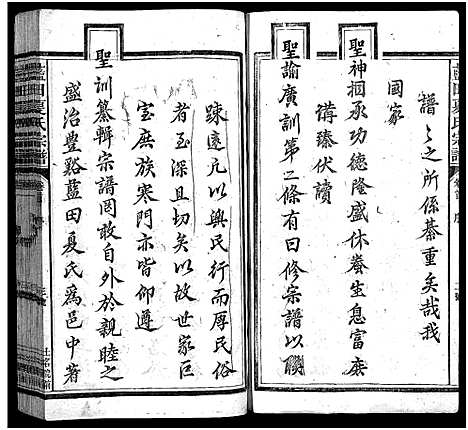 譜之之所係綦重矣哉我
國家
聖神捆承功德隆盛休養生息富庶
溝臻伏讀
聖諭廣訓第二條有曰修宗譜以聯
疎遠凡以興民行而厚民俗
者至深且切矣以故世家巨
室庶族寒門亦皆仰遵
聖訓纂輯宗譜罔敢自外於親睦之
盛治豐谿藍田夏氏為邑中著
藍田夏氏宗譜